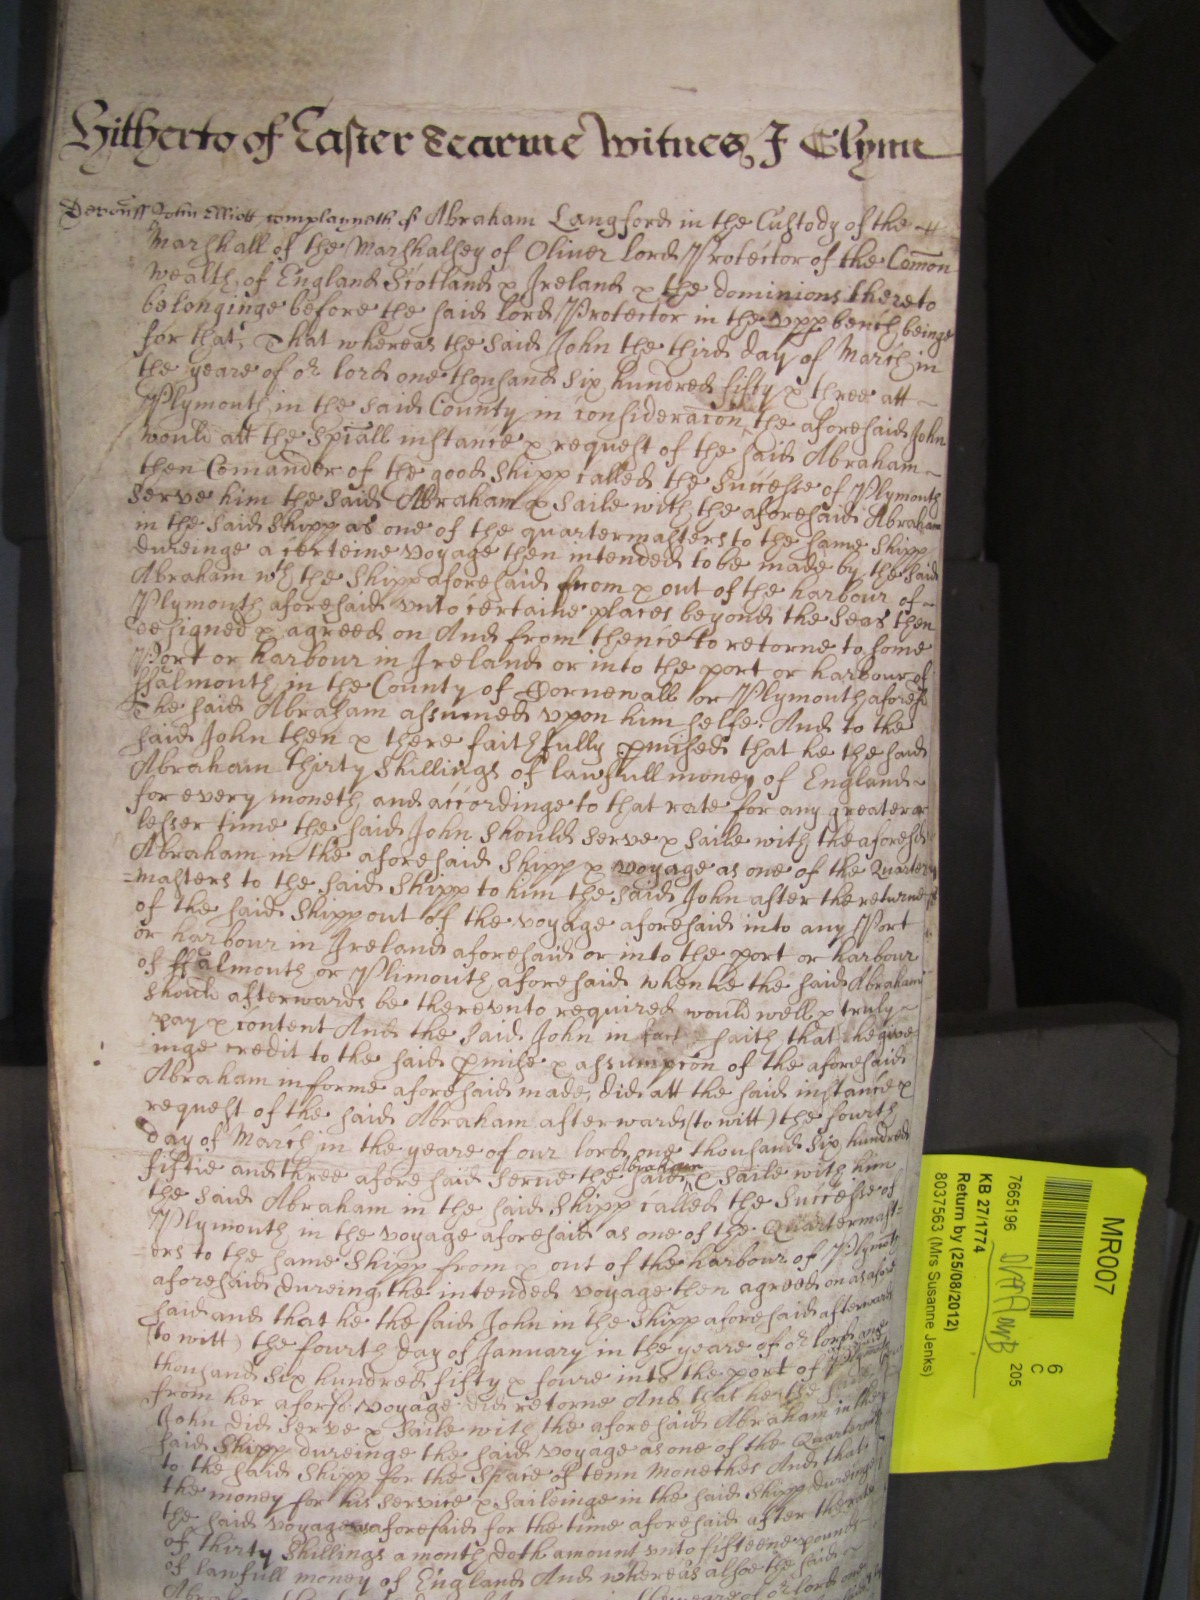 Hitherto of Easter Tearme Witnes J Glynn
Devon ss John Elliott complayneth of Abraham Langford in the Custody of the
Marshall of the Marshalsey of Oliver lord Protector of the Comon
wealth of England Scotland & Ireland & the dominions thereto
belonginge before the said lord Protector in the upp bench beinge
for that, That whereas the said John the third day of March in
the yeare of or lord one thousand six hundred fifty & three att
Plymouth in the said County in consideracon the aforesaid John
would att the spiall instance & request of the said Abraham
then Comander of the good shipp called the Successe of Plymouth
serve him the said Abraham & saile with the aforesaid Abraham
in the said shipp as one of the quartermasters to the same shipp
dureinge a certeine voyage then intended to be made by the said
Abraham wth the shipp aforesaid from & out of the harbour of
Plymouth aforesaid unto certaine places beyond the seas then
designed & agreed on And from thence to retorne to some
Port or harbour in Ireland or into the port or harbour of
ffalmouth in the County of Cornewall or Plymouth aforesd
The said Abraham assumed upon him selfe And to the
said John then & there faithfully pmised that he the said
Abraham thirty shillings of lawfull money of England
for every moneth and accordinge to that rate for any greater or
lesser time the said John should serve & saile with the aforesd
Abraham in the aforesaid shipp & voyage as one of the Quarter
masters to the said shipp to him the said John after the returne
of the said shipp out of the voyage aforesaid into any Port
or harbour in Ireland aforesaid or into the port or harbour
of ffalmouth or Plimouth aforesaid when he the said Abraham
should afterwards be thereunto required would well & truly
pay & content And the said John in fact saith that he give
inge credit to the said pmise & assumpcon of the aforesaid
Abraham in forme aforesaid made, did att the said instance &
request of the said Abraham afterwards (to witt) the fourth
day of March in the yeare of our lord one thousand six hundred
fiftie and three aforesaid serve the said Abraham & saile with him
the said Abraham in the said shipp called the Successe of
Plymouth in the voyage aforesaid as one of the Quartermast
ers to the same shipp from & out of the harbour of Plymoth
aforesaid dureing the intended voyage then agreed on as afore
said and that he the said John in the shipp aforesaid afterward
(to witt) the fourth day of January in the yeare of or lord one
thousand six hundred fifty & foure into the port of Plymouth
from her aforsd voyage did retorne And that he the said
John did serve & saile with the aforesaid Abraham in the
said shipp dureinge the said voyage as one of the Quarterm
to the said shipp for the space of tenn monethes And that
the money for his service & saileinge in the said shipp dureinge
the said voyage as aforesaid for the time aforesaid after the rate
of thirty shillings a month doth amount unto fifteene pounds
of lawfull money of England And whereas alsoe the said
in the yeare of or lord one
MR007
6
C
205
7665196
KB 27/1774
Return by (25/08/2012)
8037563 (Mrs Susanne Jenks)